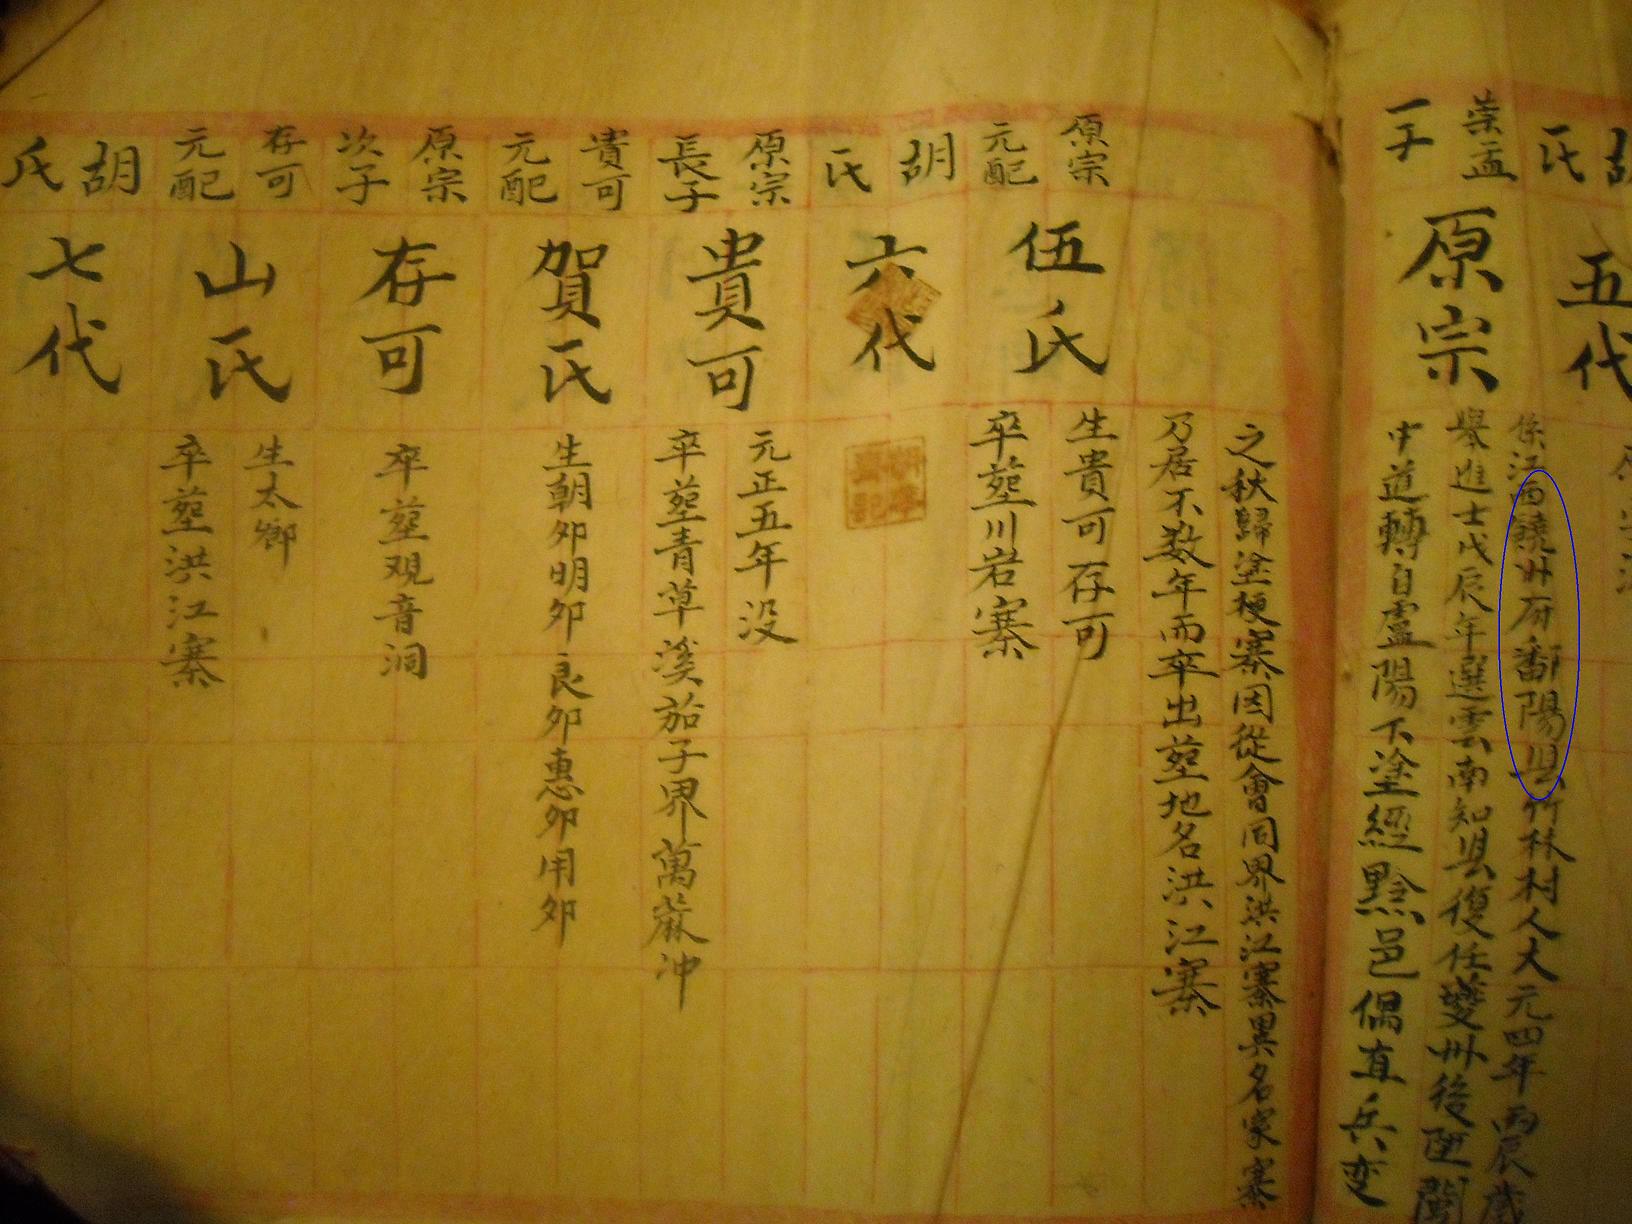 胡氏
五代
荣孟
一子
原宗
係江西饒州府鄱陽县竹林村人大元四年丙辰歲
舉進士戊辰年選雲南知县復任夔州後陞閣
中道轉自盧陽下塗經黔邑偶直兵变
之秋歸塗梗寨因從會同界洪江寨異名家寨
乃居不数年而卒出塟地名洪江寨
原宗
元配
伍氏
生貴可存可
卒塟川岩寨
胡氏
六代
原宗
長子
貴可
元正五年没
卒塟青草溪茄子界萬蔴冲
貴可
元配
賀氏
生朝卯明卯良卯惠卯用卯
原宗
次子
存可
卒塟观音洞
存可
元配
山氏
生太鄉
卒塟洪江寨
胡氏
七代